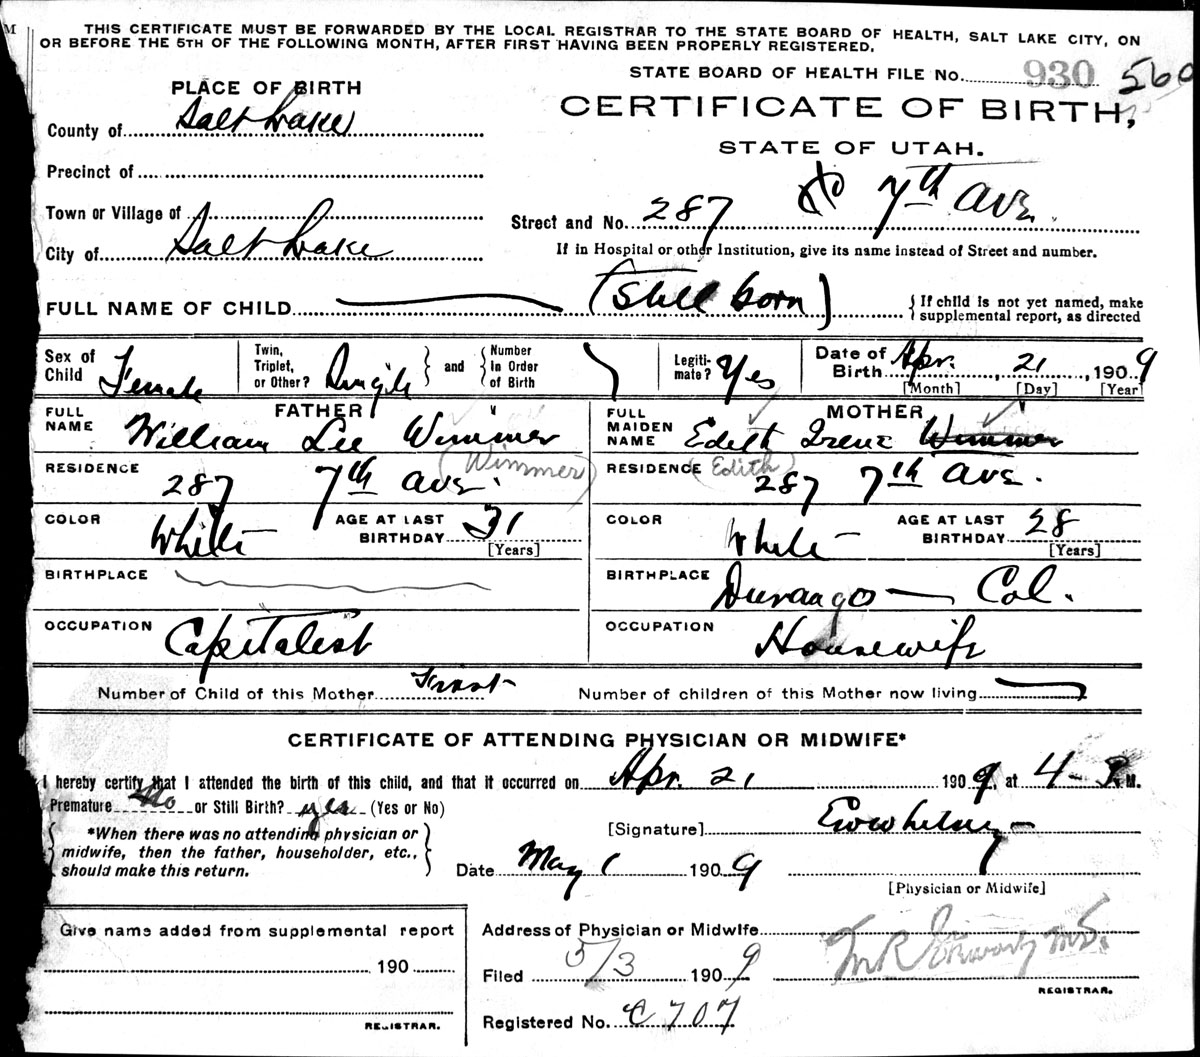 THIS CERTIFICATE MUST BE FORWARDED BY THE LOCAL REGISTRAR TO THE STATE BOARD OF HEALTH, SALT LAKE CITY, ON
OR BEFORE THE 5TH OF THE FOLLOWING MONTH, AFTER FIRST HAVING BEEN PROPERLY REGISTERED.
STATE BOARD OF HEALTH FILE No. 930 560
PLACE OF BIRTH
CERTIFICATE OF BIRTH,
STATE OF UTAH.
County of Salt Lake
Precinct of
Town or Village of
Street and No. 287 7th Ave.
City of Salt Lake
If in Hospital or other Institution, give its name instead of Street and number.
FULL NAME OF CHILD (Still born) { If child is not yet named, make
supplemental report, as directed
Sex of Child Female
Twin, Triplet, or Other? Single } and { Number In Order of Birth
Legiti-mate? Yes
Date of Birth Apr. 21, 1909
[Month] [Day] [Year]
FATHER
FULL NAME William Lee Wimmer
(Wimmer)
MOTHER
FULL MAIDEN NAME Edith Irene Wimmer
(Edith)
RESIDENCE 287 7th Ave.
RESIDENCE 287 7th Ave.
COLOR White AGE AT LAST BIRTHDAY 31 [Years]
COLOR White AGE AT LAST BIRTHDAY 28 [Years]
BIRTHPLACE
BIRTHPLACE Durango - Col.
OCCUPATION Capitalist
OCCUPATION Housewife
Number of Child of this Mother First Number of children of this Mother now living
CERTIFICATE OF ATTENDING PHYSICIAN OR MIDWIFE*
I hereby certify that I attended the birth of this child, and that it occurred on Apr. 21 1909, at 4 - P.M.
Premature No or Still Birth? yes (Yes or No)
{ *When there was no attending physician or
midwife, then the father, householder, etc.,
should make this return. }
[Signature]
Date May 1 1909
[Physician or Midwife]
Give name added from supplemental report
190
REGISTRAR.
Address of Physician or Midwife
Filed 5/3 1909
REGISTRAR.
Registered No. C 707